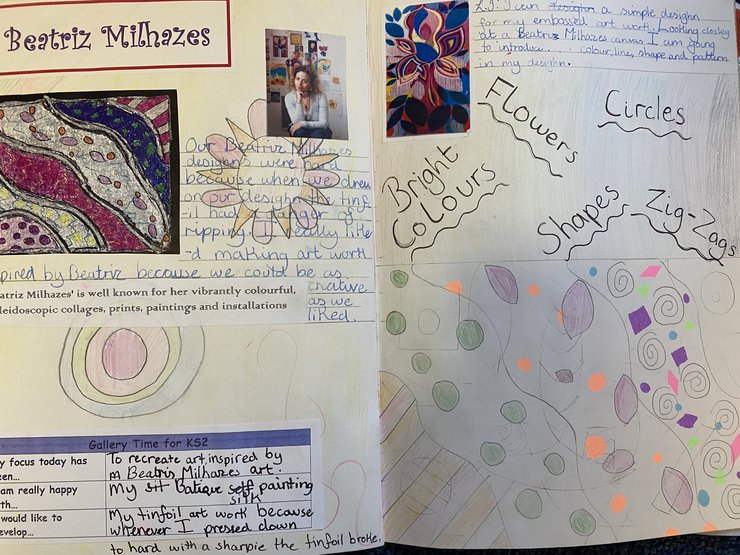 Beatriz Milhazes
Our Beatriz Milhazes
designs were hard
because when we drew
on our design the tinf
-il had a danger of
ripping. I really like
-d making art work
pired by Beatriz because we could be as
creative
as we
liked.
atriz Milhazes' is well known for her vibrantly colourful,
leidoscopic collages, prints, paintings and installations
Gallery Time for KS2
y focus today has
een...
To recreate art, inspired by
m Beatris Milhazes art.
am really happy
th...
My sit Batique self painting
silk
would like to
evelop...
My tinfoil art work because
whenever I pressed down
to hard with a sharpie the tinfoil broke.
L.I: I can design a simple desighn
for my embossed art work. Looking closley
at a Beatriz Milhazes canvas I am going
to introduce.... colour, line, shape and pattern
in my desighn.
Flowers
Circles
Bright
Colours
Shapes
Zig-Zags